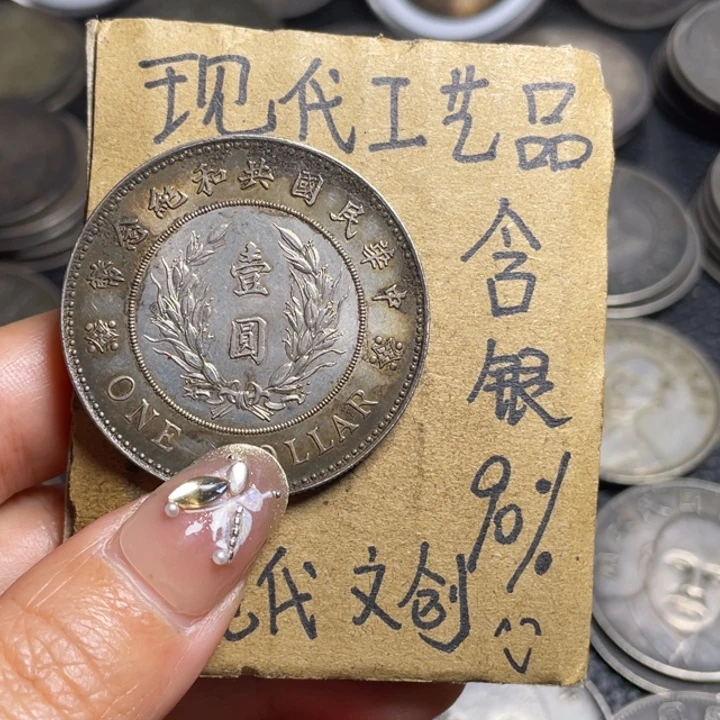 现代工艺品
含银90%
代文创
中華民國共和紀念幣
壹圓
ONE DOLLAR